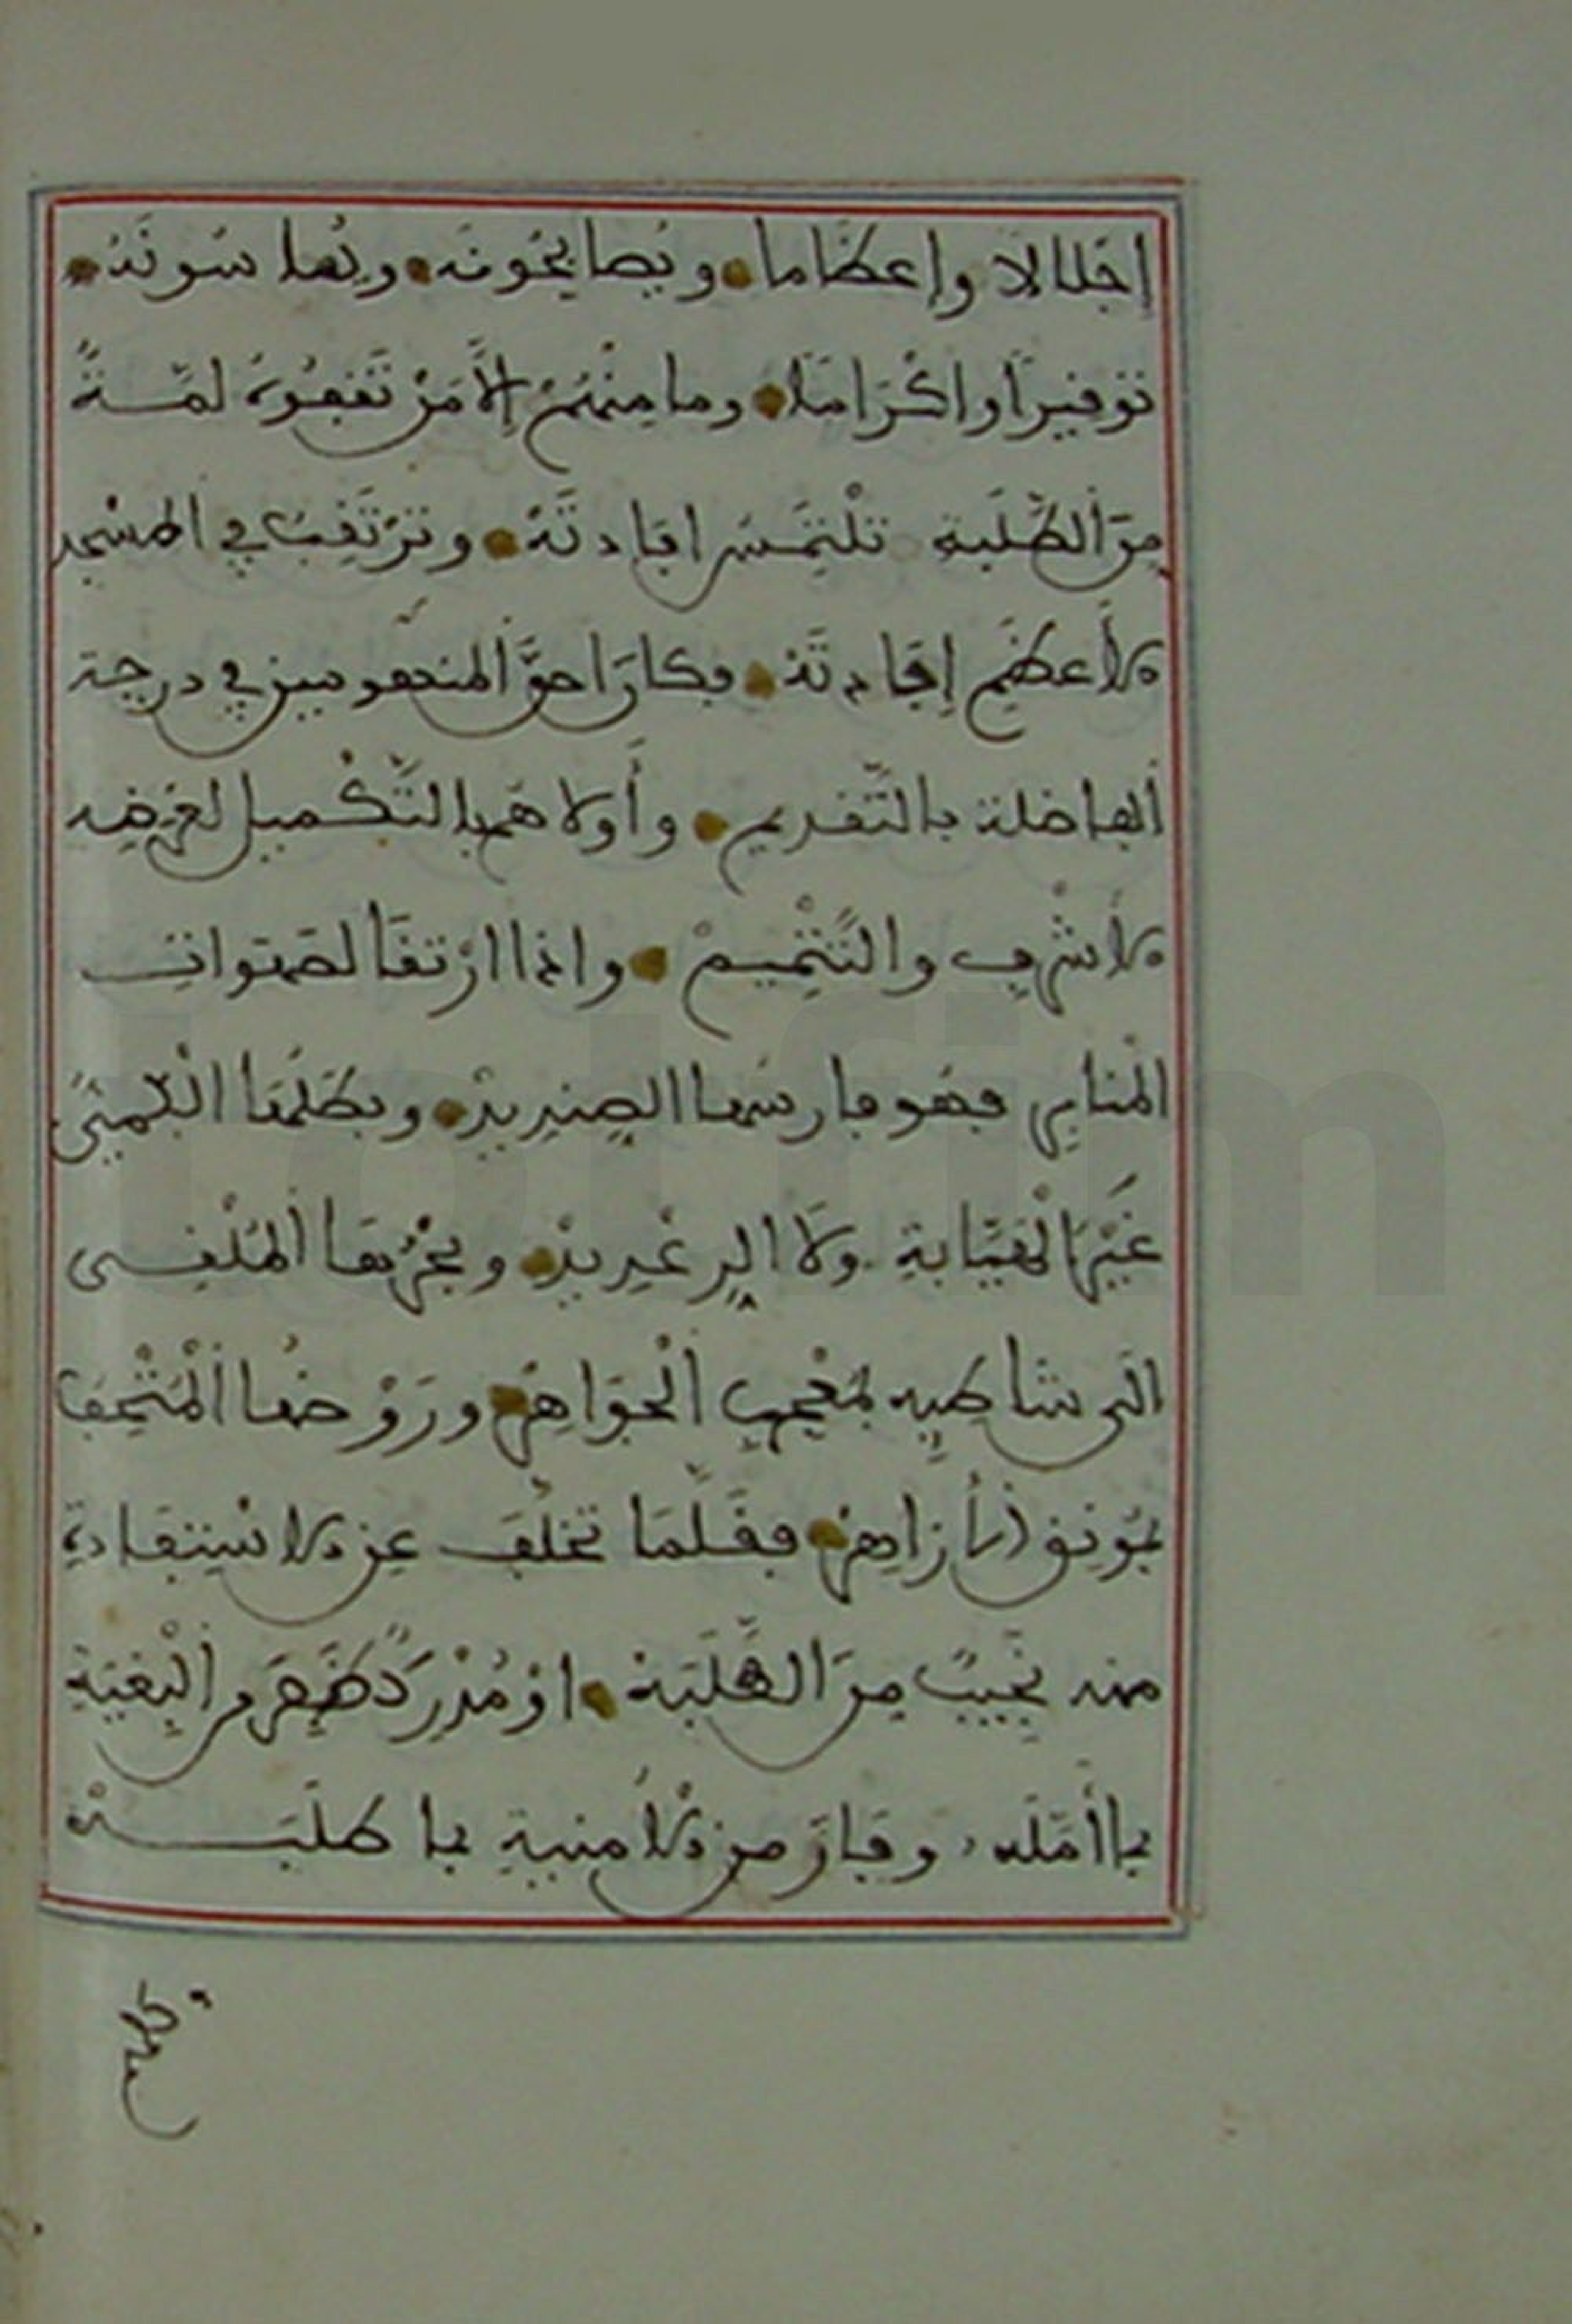 إجلالا وإعظاما ويصابحونه ويماسونه
توفيرا واكراما وما منهم إلا من تقفوه لمة
من الطلبة تلتمس افادته وترتقب في المسجد
الأعظم إفادته فكان احق المنعوتين في درجة
الفاضلة بالتقديم وأولاهم بالتكميل لغرضه
الأشرف والتتميم وانما ارتقا لصهوات
المنابر فهو فارسها الصنديد وبطلها الكمي
غير الهيابة ولا الرعديد وبحرها الملقي
الى شاطيه بمعجب الجواهر وروضها المتحف
بمونق أزاهر فقلما تخلف عن الاستفادة
منه نجيب من الطلبة او مدرك ظفر من البغية
بما أمله وفاز من الأمنية بما طلبه